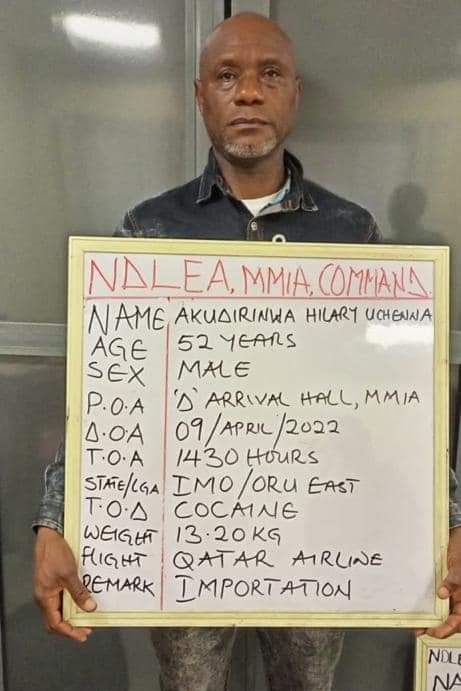 NDLEA, MMIA, COMMAND.
NAME AKUDIRINWA HILARY UCHENNA
AGE 52 YEARS
SEX MALE
P.O.A 'D' ARRIVAL HALL, MMIA
D.O.A 09/APRIL/2022
T.O.A 1430 HOURS
STATE/LGA IMO/ORU EAST
T.O.D COCAINE
WEIGHT 13.20KG
FLIGHT QATAR AIRLINE
REMARK IMPORTATION
NDLE
NA